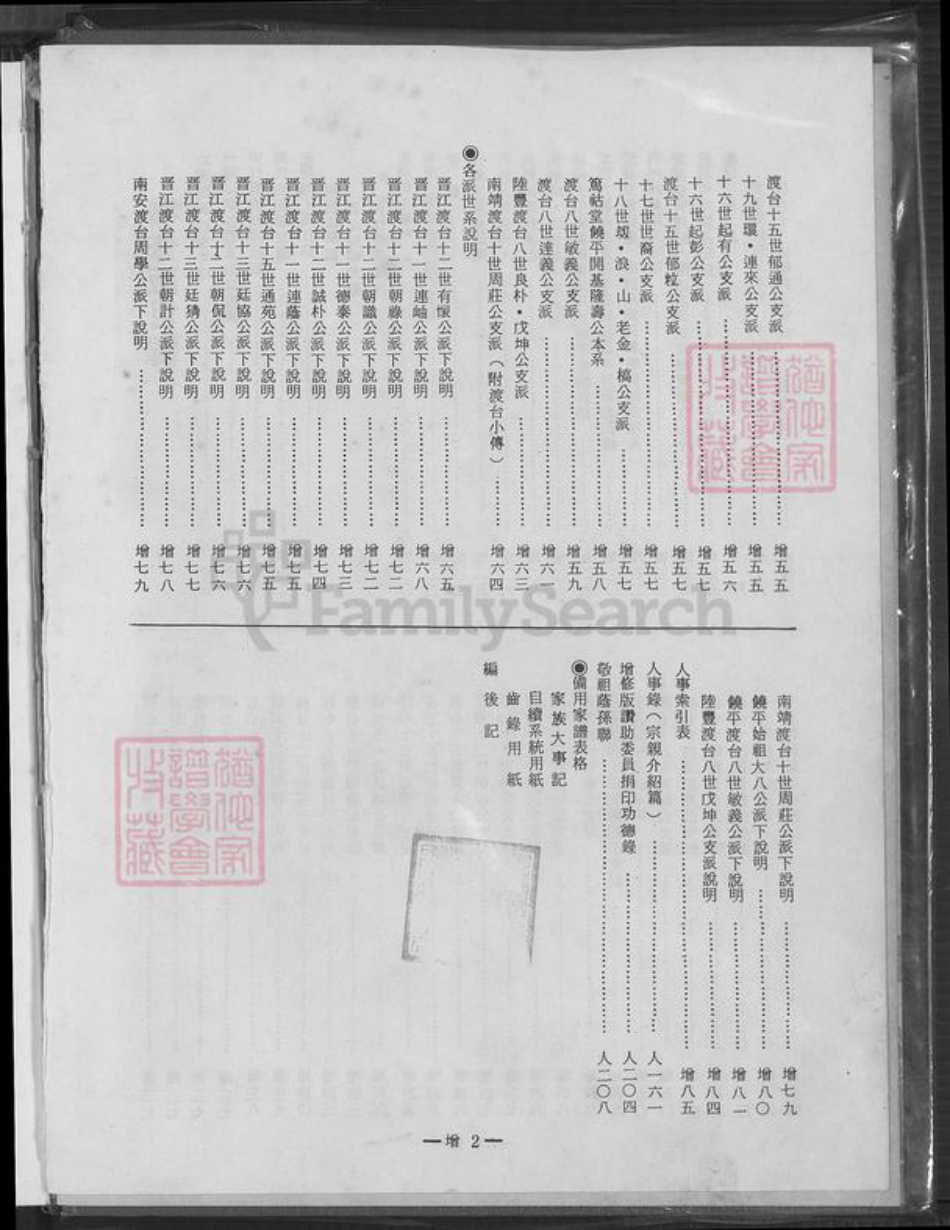 渡台十五世郁通公支派……增五五
十九世環・連來公支派……增五五
十六世起有公支派……增五六
十六世起彭公支派……增五七
渡台十五世郁粒公支派……增五七
十七世世裔公支派……增五七
十八世・浪・山・老金・槁公支派……增五七
篤祜堂饒平開基隆壽公本系……增五八
渡台八世敏義公支派……增五九
渡台八世達義公支派……增六一
陸豐渡台八世良朴・戊坤公支派……增六三
南靖渡台十世周莊公支派（附渡台小傳）……增六四
◉各派世系說明
晋江渡台十二世有懷公派下說明……增六五
晋江渡台十一世連岫公派下說明……增六八
晋江渡台十二世朝祿公派下說明……增七二
晋江渡台十二世朝議公派下說明……增七二
晋江渡台十一世德泰公派下說明……增七三
晋江渡台十二世誠朴公派下說明……增七四
晋江渡台十一世連蔭公派下說明……增七五
晋江渡台十五世通苑公派下說明……增七五
晋江渡台十三世廷協公派下說明……增七六
晋江渡台十二世朝侃公派下說明……增七六
晋江渡台十三世廷猜公派下說明……增七七
晋江渡台十二世朝計公派下說明……增七八
南安渡台周學公派下說明……增七九
南靖渡台十世周莊公派下說明……增七九
饒平始祖大八公派下說明……增八〇
饒平渡台八世敏義公派下說明……增八一
陸豐渡台八世戊坤公支派說明……增八四
人事索引表……增八五
人事錄（宗親介紹篇）……人一六一
增修版讚助委員捐印功德錄……人二〇四
敬祖蔭孫聯……人二〇八
◉備用家譜表格
家族大事記
自續系統用紙
齒錄用紙
編後記
—增 2—
FamilySearch